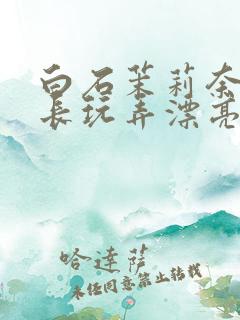 白石茉莉奈
长玩弄漂亮
哈達薩
未经同意禁止转载